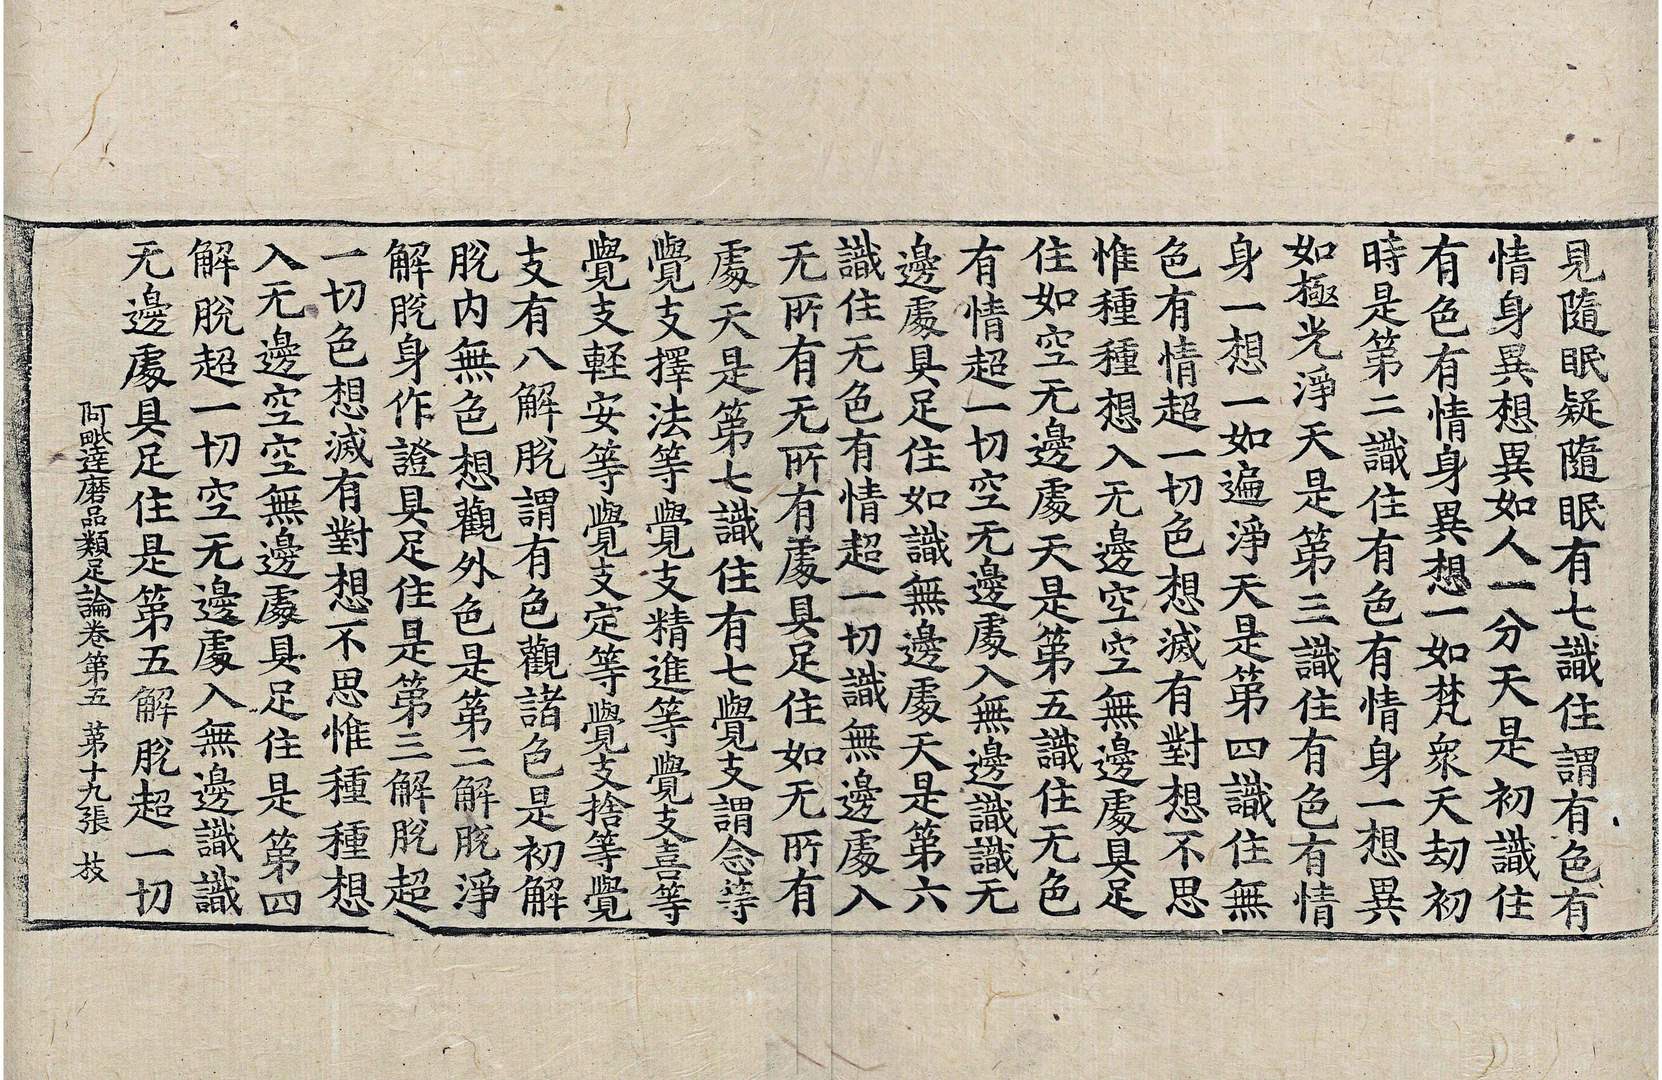 見隨眠疑隨眠有七識住謂有色有
情身異想異如人一分天是初識住
有色有情身異想一如梵衆天劫初
時是第二識住有色有情身一想異
如極光淨天是第三識住有色有情
身一想一如遍淨天是第四識住無
色有情超一切色想滅有對想不思
惟種種想入无邊空空無邊處具足
住如空无邊處天是第五識住无色
有情超一切空无邊處入無邊識識无
邊處具足住如識無邊處天是第六
識住无色有情超一切識無邊處入
无所有无所有處具足住如无所有
處天是第七識住有七覺支謂念等
覺支擇法等覺支精進等覺支喜等
覺支輕安等覺支定等覺支捨等覺
支有八解脫謂有色觀諸色是初解
脫内無色想觀外色是第二解脫淨
解脫身作證具足住是第三解脫超
一切色想滅有對想不思惟種種想
入无邊空空無邊處具足住是第四
解脫超一切空无邊處入無邊識識
无邊處具足住是第五解脫超一切
阿毗達磨品類足論卷第五 第十九張 㧞